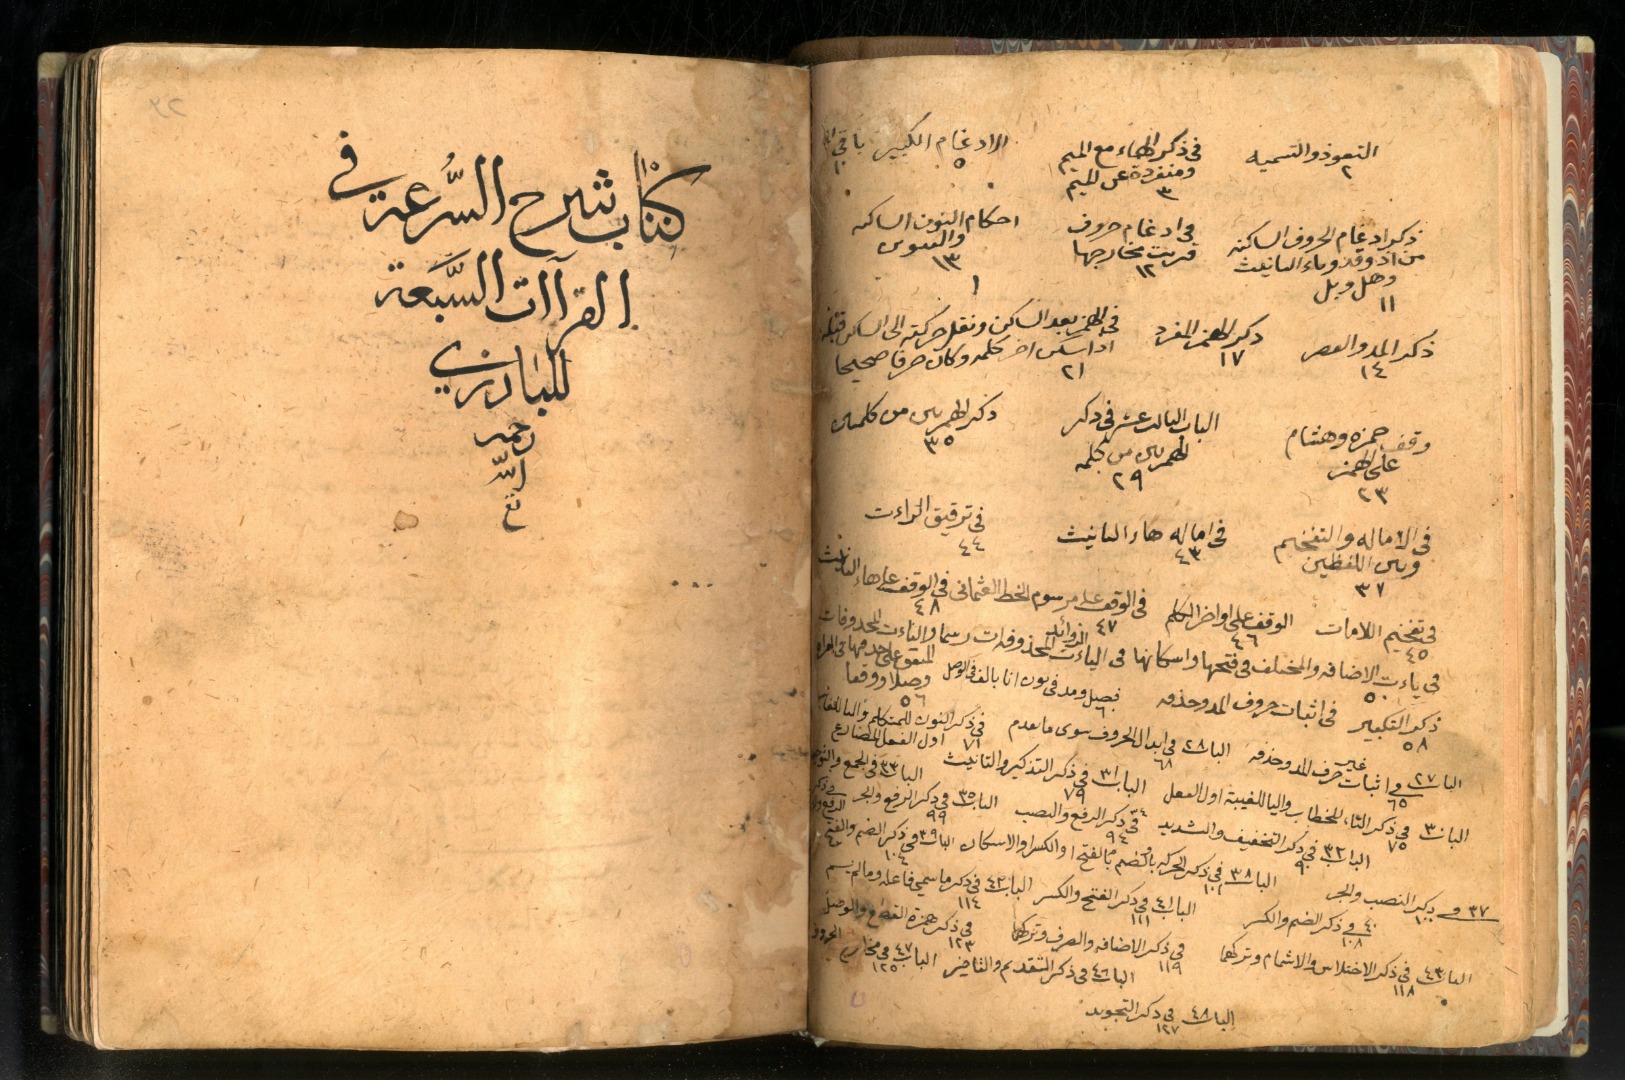 التعوذ والتسمية
٢
في ذكر الهاء مع الميم
ومنفردة عن الميم
٣
الادغام الكبير
٥
باقي
ذكر ادغام الحروف الساكنه
من اذ وقد وتاء التانيث
وهل وبل
١١
في ادغام حروف
قربت مخارجها
١٢
احكام النون الساكنه
والتنوين
١٣
ذكر المد والقصر
١٤
ذكر الهمز المفرد
١٧
في الهمز بعد الساكن ونقل حركته الى الساكن قبله
اخر كلمه وكان حرفا صحيحا
٢١
وقف حمزه وهشام
على الهمز
٢٣
الباب الثالث عشر في ذكر
الهمزتين من كلمه
٢٩
ذكر الهمزتين من كلمتين
٣٥
في الاماله والتفخيم
وبين اللفظين
٣٧
في اماله هاء التانيث
٤٣
في ترقيق الراءت
٤٤
في تفخيم اللامات
٤٥
الوقف على اواخر الكلم
٤٦
في الوقف على مرسوم الخط العثماني
٤٧
في الوقف على هاء التانيث
٤٨
في ياءت الاضافه والمختلف في فتحها واسكانها
٥٠
في الياءت المحذوفات رسما
الزوائد
والياءت المحذوفات
المتفق على حذفها
وصلا ووقفا
٥٦
ذكر التكبير
٥٨
في اثبات حروف المد وحذفه
فصل ومد في نون انا بالف في الوصل
٦٠
الباب ٢٧ في اثبات غير حرف المد وحذفه
٦٥
الباب ٢٨ في ابدال الحروف سوى ما تقدم
٦٨
في ذكر النون للمتكلم والياء للغائب
اول الفعل المضارع
٧١
الباب ٣٠ في ذكر التاء للخطاب والياء للغيبة اول الفعل
٧٥
الباب ٣١ في ذكر التذكير والتانيث
٧٩
الباب ٣٣ في الجمع والتوحيد
الباب ٣٢ في ذكر التخفيف والتشديد
٩٠
٣٤ في ذكر الرفع والنصب
٩٤
الباب ٣٥ في ذكر الرفع والجر
٩٩
٣٧ في ذكر النصب والجر
١٠٠
الباب ٣٨ في ذكر الحركه بالضم او بالفتح او الكسر او الاسكان
١٠١
الباب ٣٩ في ذكر الضم والفتح
١٠٤
٤٠ في ذكر الضم والكسر
١٠٨
الباب ٤١ في ذكر الفتح والكسر
١١١
الباب ٤٢ في ذكر ما سمي فاعله وما لم يسم
١١٤
الباب ٤٣ في ذكر الاختلاس والاشمام وتركهما
١١٨
في ذكر الاضافه والصرف وتركهما
١١٩
في ذكر همزة القطع والوصل
١٢٣
الباب ٤٦ في ذكر التقديم والتاخير
الباب ٤٧ في مخارج الحروف
١٢٥
الباب ٤٨ في ذكر التجويد
١٢٧
كتاب شرح السرعة في
القراآت السبعة
للبارزي
رحمه
الله
تع